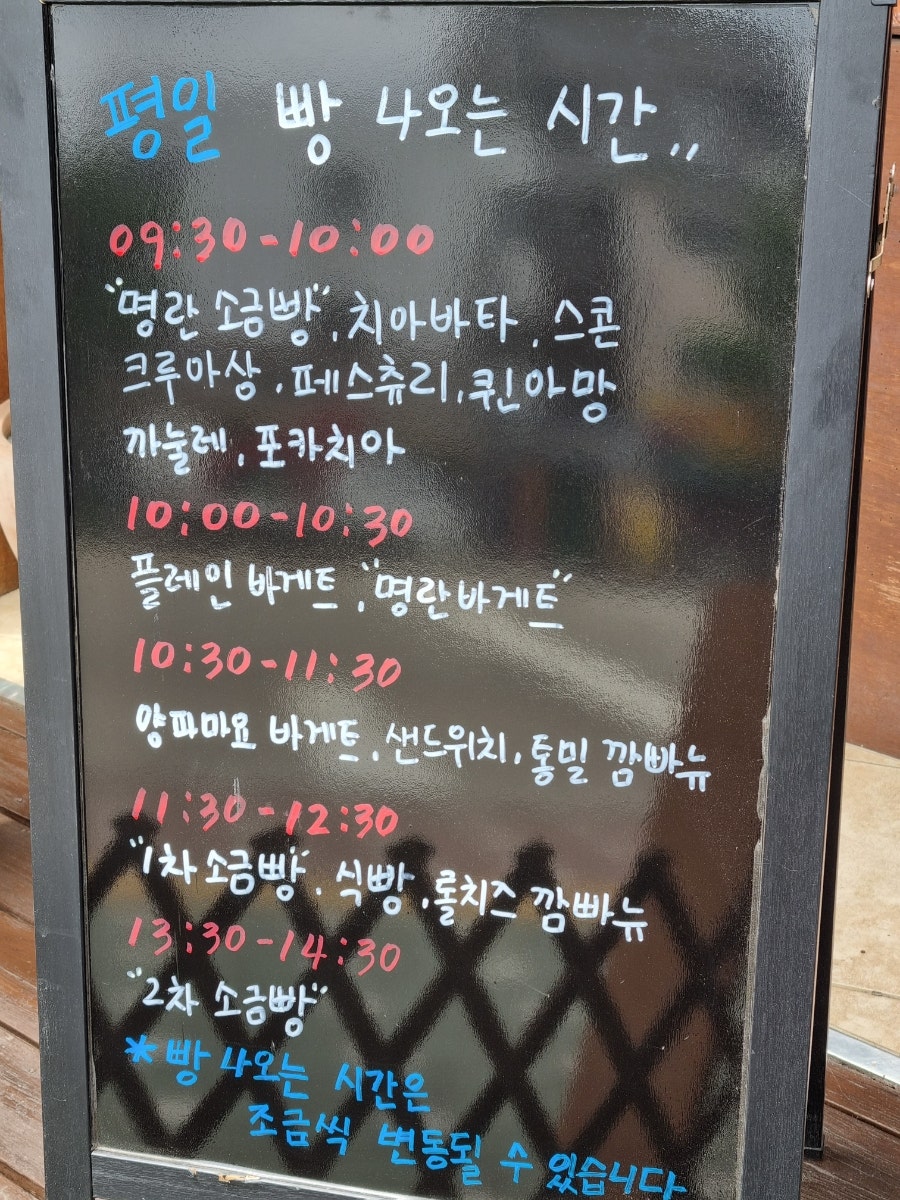 평일 빵 나오는 시간,,
09:30-10:00
"명란 소금빵", 치아바타, 스콘
크루아상, 페스츄리, 퀸아망
까눌레, 포카치아
10:00-10:30
플레인 바게트, "명란바게트"
10:30-11:30
양파마요 바게트, 샌드위치, 통밀 깜빠뉴
11:30-12:30
"1차 소금빵", 식빵, 롤치즈 깜빠뉴
13:30-14:30
"2차 소금빵"
*빵 나오는 시간은
조금씩 변동될 수 있습니다